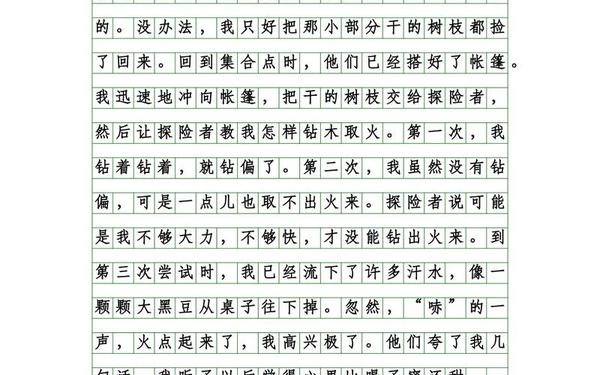 的。没办法，我只好把那小部分干的树枝都捡
了回来。回到集合点时，他们已经搭好了帐篷。
我迅速地冲向帐篷，把干的树枝交给探险者，
然后让探险者教我怎样钻木取火。第一次，我
钻着钻着，就钻偏了。第二次，我虽然没有钻
偏，可是一点儿也取不出火来。探险者说可能
是我不够大力，不够快，才没能钻出火来。到
第三次尝试时，我已经流下了许多汗水，像一
颗颗大黑豆从桌子往下掉。忽然，“哧”的一
声，火点起来了，我高兴极了。他们夸了我几
句话，我听了以后觉得心里比喝了蜜还甜